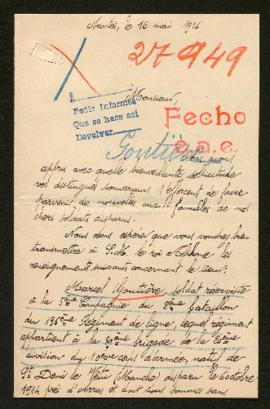 Nantes, le 16 mai 1916
27949
Monsieur,
Pedir informes
Que se hace así
Devolver
Fecho
e.a.e.
Gontière
appris avec quelle bienveillante sollicitude
vos distingués souverains s'efforcent de faire
parvenir des nouvelles aux familles de nos
chers soldats disparus.
Nous osons espérer que vous voudrez bien
transmettre à S.M. le roi Alphonse les
renseignements suivants concernant le sieur:
Marcel Gontière, soldat réserviste
à la Compagnie du bataillon
du 136ème Régiment de ligne, lequel régiment
appartient à la brigade de la 20ème
division du 10ème corps d'armée, natif de
St Denis le (Manche) disparu le 6 octobre
1914 près d'Arras et dont nous sommes sans